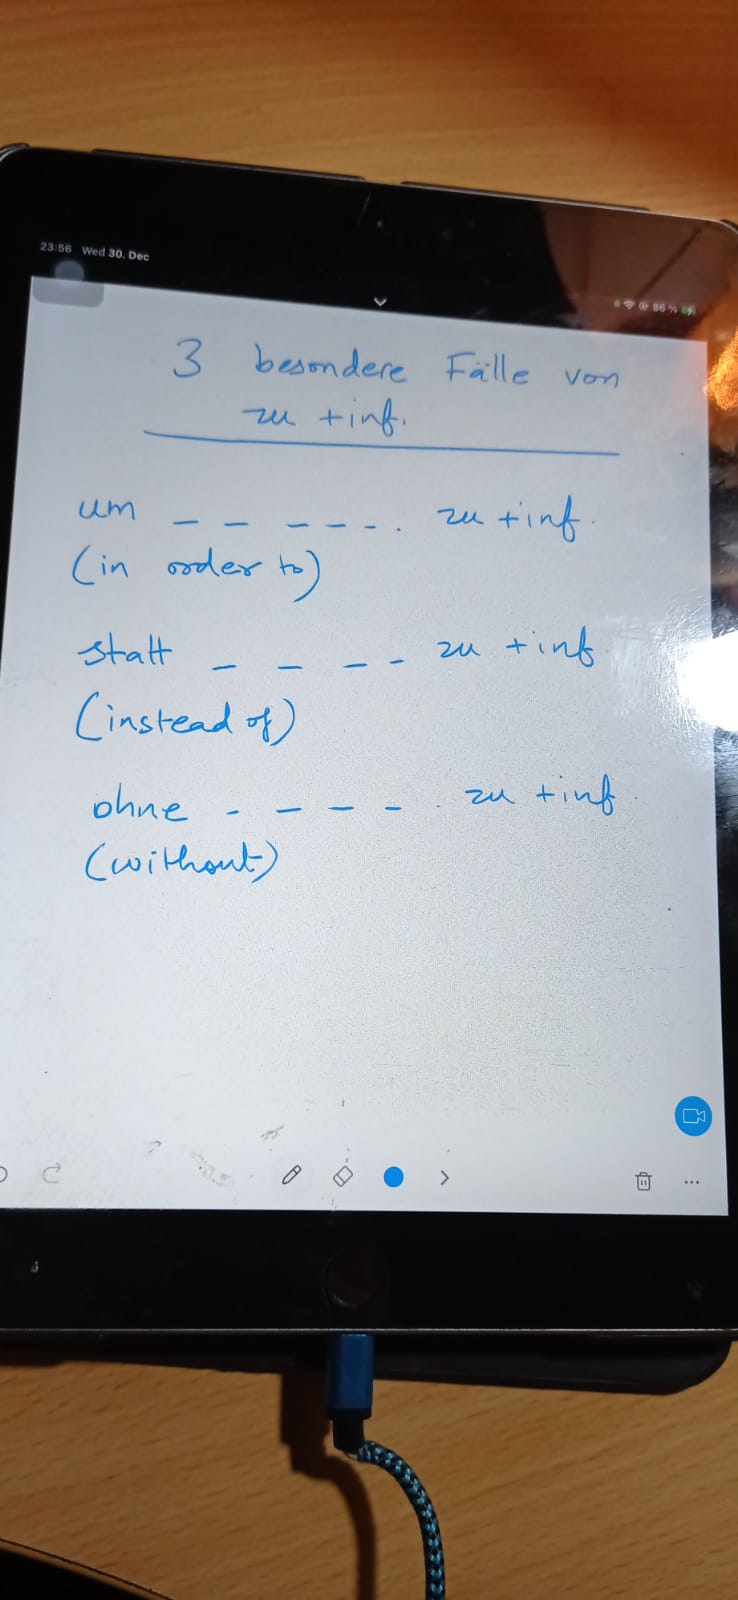 23:56 Wed 30. Dec
86 %
3 besondere Fälle von
zu + inf.
um _ _ _ _ _ . zu + inf.
(in order to)
statt _ _ _ _ zu + inf.
(instead of)
ohne _ _ _ _ . zu + inf.
(without)